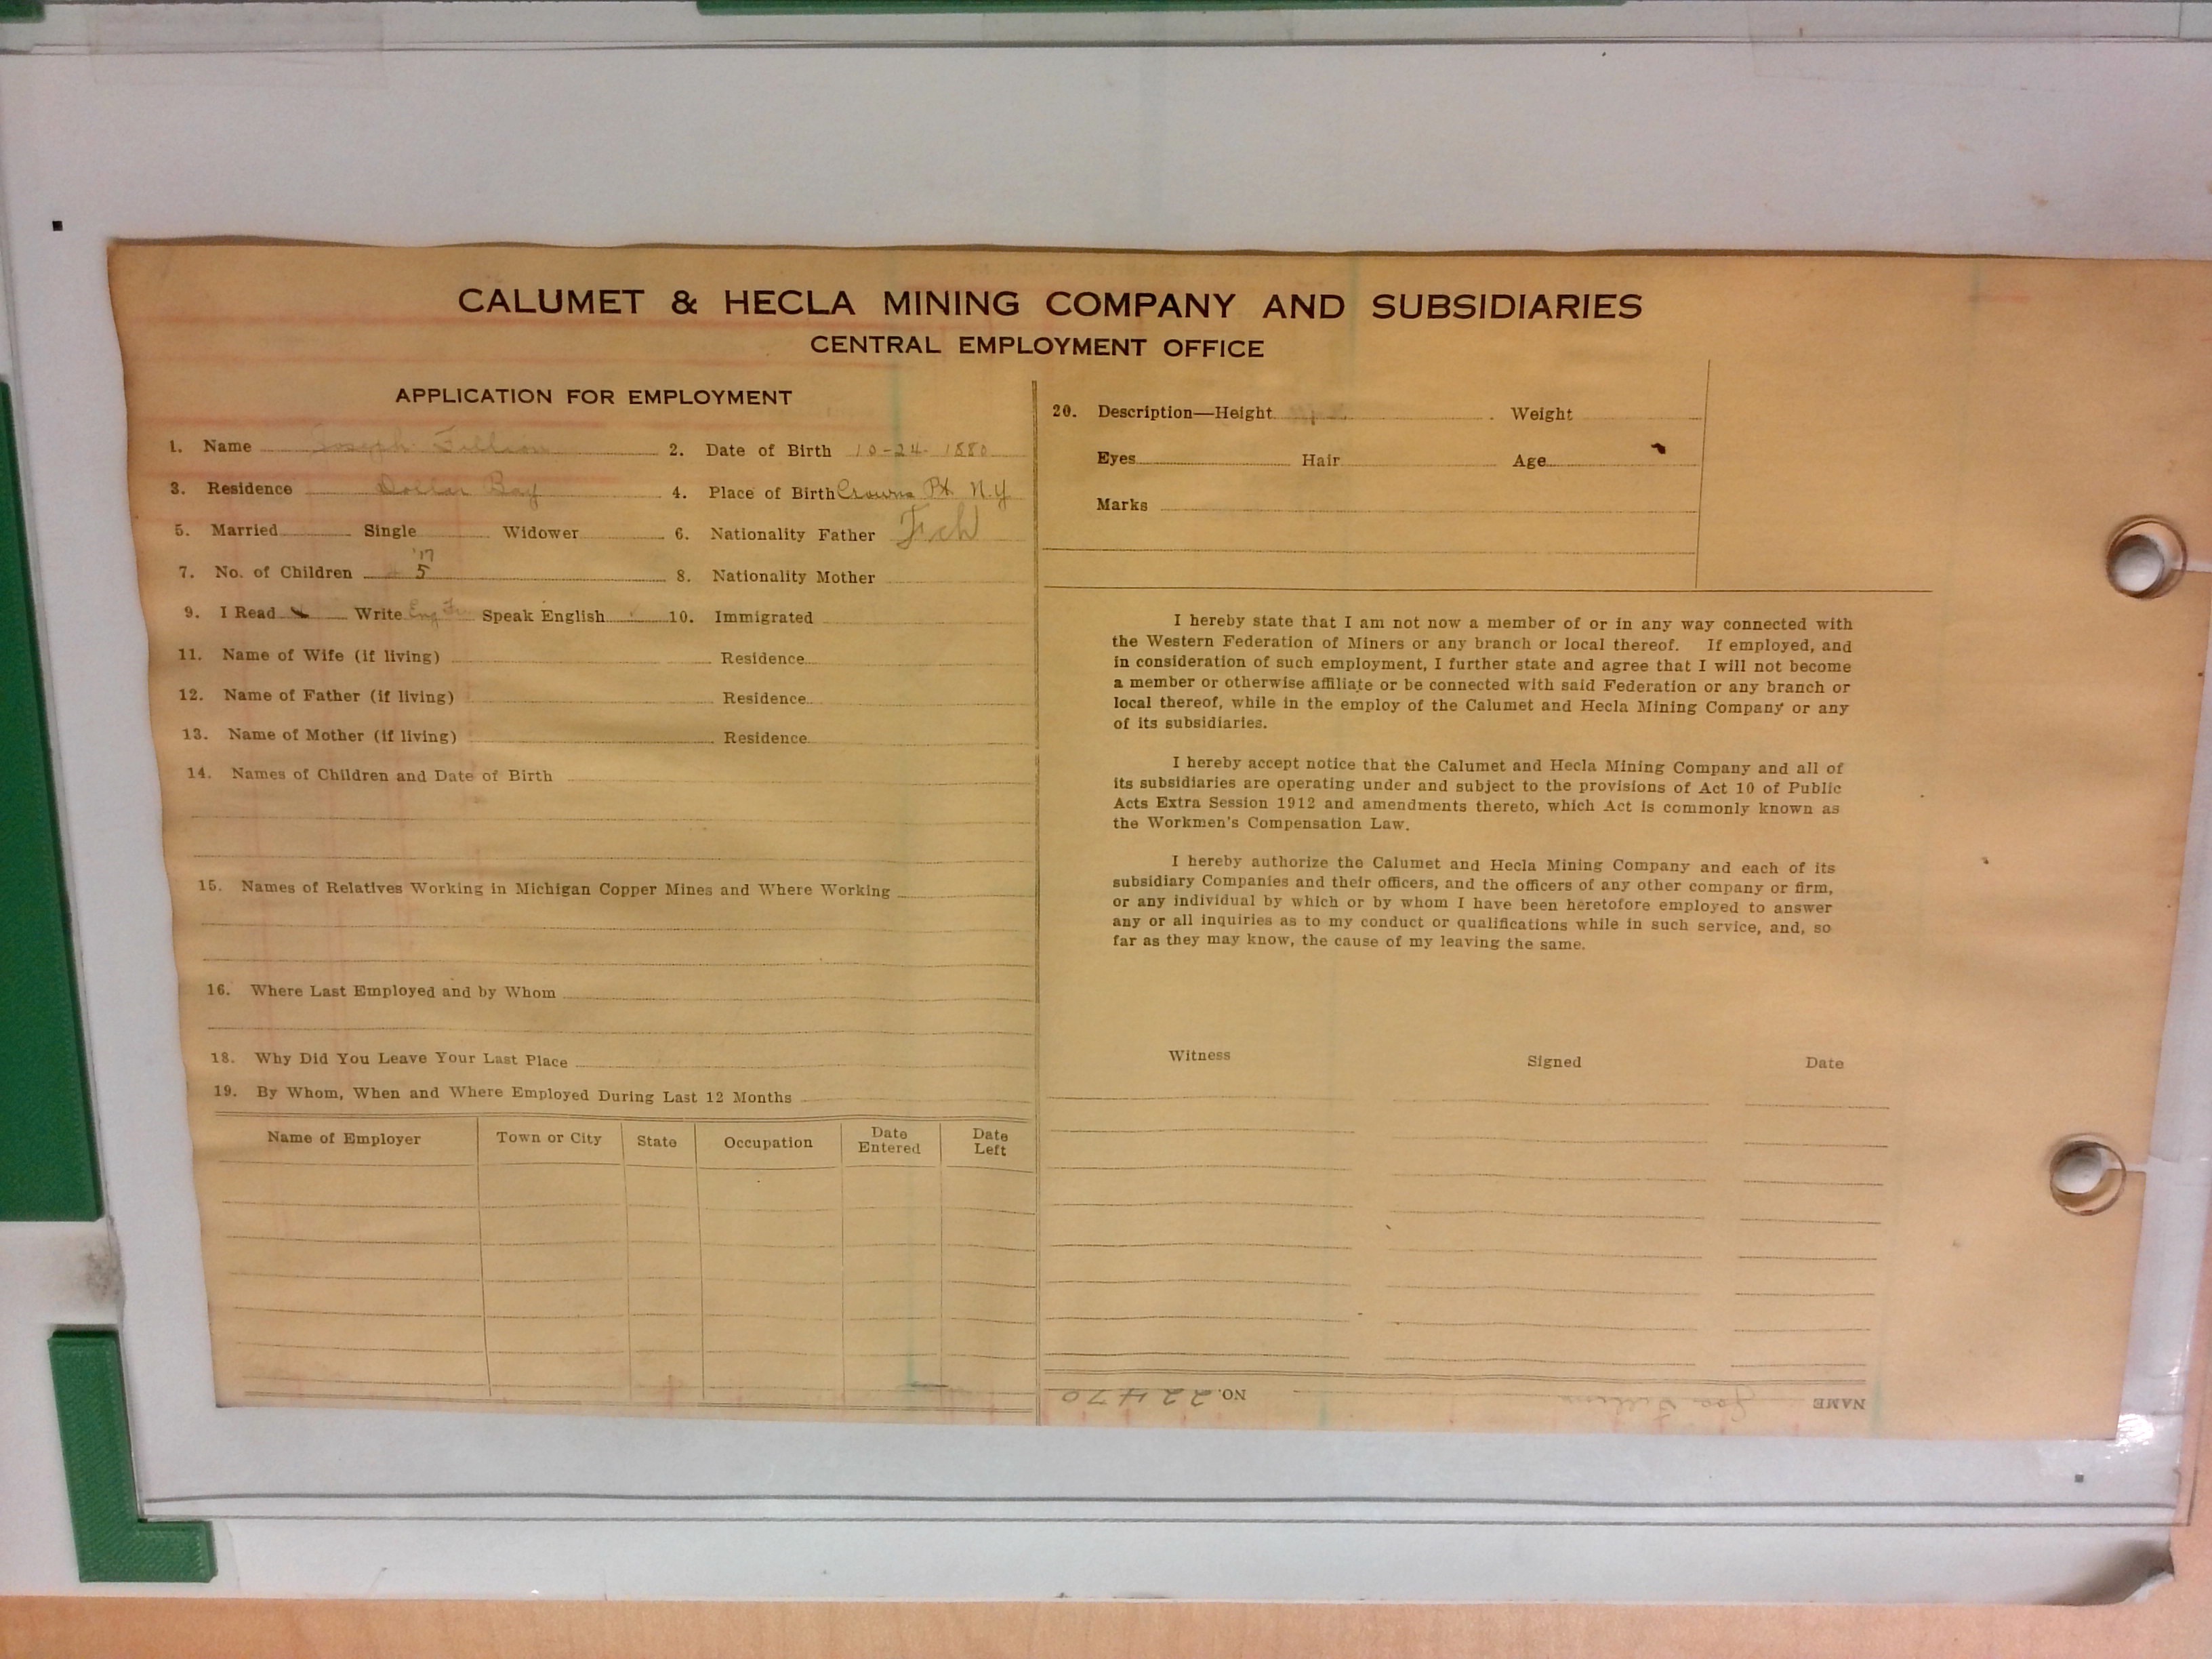 CALUMET & HECLA MINING COMPANY AND SUBSIDIARIES
CENTRAL EMPLOYMENT OFFICE
APPLICATION FOR EMPLOYMENT
1. Name Joseph Fillion 2. Date of Birth 10-24-1880
3. Residence Dollar Bay 4. Place of Birth Crowns Pt N.Y
5. Married Single Widower 6. Nationality Father Fch
'17
7. No. of Children 5 8. Nationality Mother
9. I Read Write Eng Fr Speak English 10. Immigrated
11. Name of Wife (if living) Residence
12. Name of Father (if living) Residence
13. Name of Mother (if living) Residence
14. Names of Children and Date of Birth
15. Names of Relatives Working in Michigan Copper Mines and Where Working
16. Where Last Employed and by Whom
18. Why Did You Leave Your Last Place
19. By Whom, When and Where Employed During Last 12 Months
Name of Employer Town or City State Occupation Date Entered Date Left
20. Description—Height Weight
Eyes Hair Age
Marks
I hereby state that I am not now a member of or in any way connected with
the Western Federation of Miners or any branch or local thereof. If employed, and
in consideration of such employment, I further state and agree that I will not become
a member or otherwise affiliate or be connected with said Federation or any branch or
local thereof, while in the employ of the Calumet and Hecla Mining Company or any
of its subsidiaries.
I hereby accept notice that the Calumet and Hecla Mining Company and all of
its subsidiaries are operating under and subject to the provisions of Act 10 of Public
Acts Extra Session 1912 and amendments thereto, which Act is commonly known as
the Workmen's Compensation Law.
I hereby authorize the Calumet and Hecla Mining Company and each of its
subsidiary Companies and their officers, and the officers of any other company or firm,
or any individual by which or by whom I have been heretofore employed to answer
any or all inquiries as to my conduct or qualifications while in such service, and, so
far as they may know, the cause of my leaving the same.
Witness Signed Date
NAME Joe Fillion NO. 22470